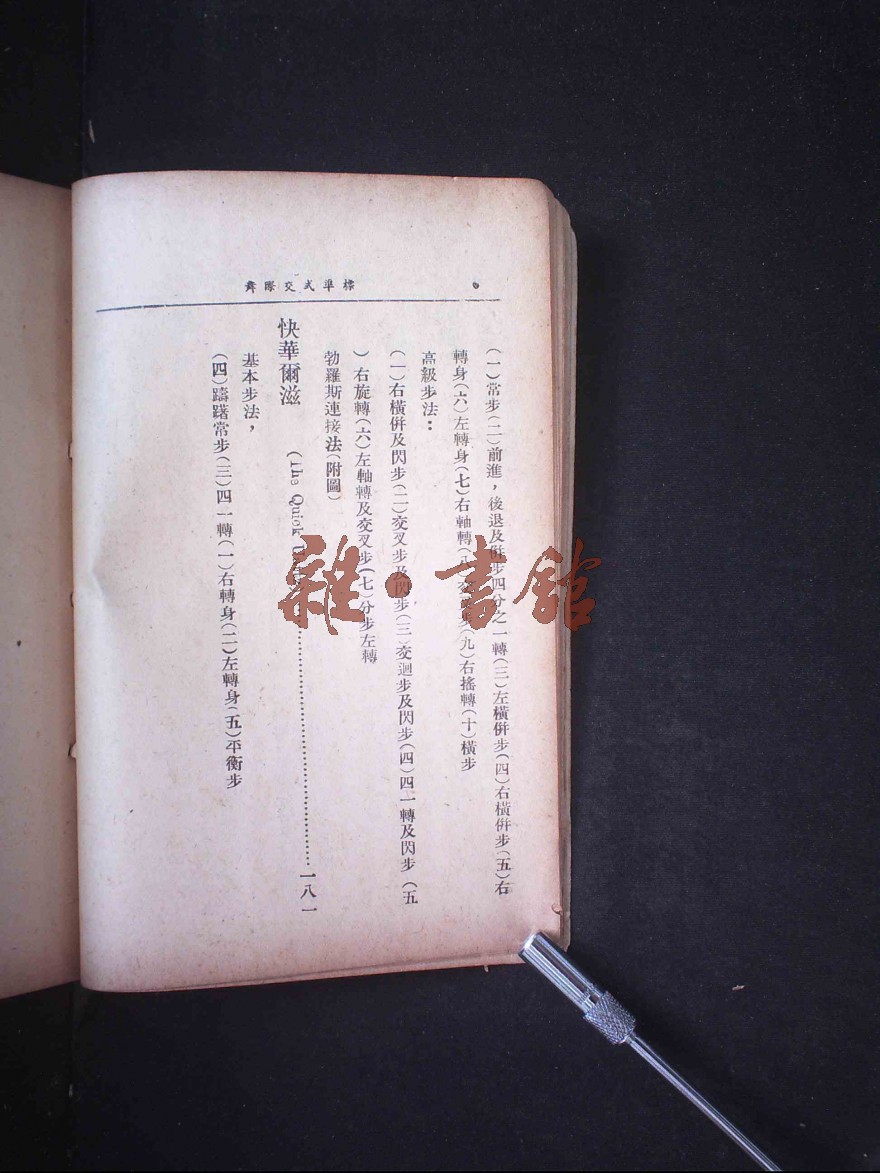 標準式交際舞
（一）常步（二）前進，後退及併步四分之一轉（三）左橫併步（四）右橫併步（五）右
轉身（六）左轉身（七）右軸轉（八）步（九）右搖轉（十）橫步
高級步法：
（一）右橫併及閃步（二）交叉步及閃步（三）交迴步及閃步（四）四一轉及閃步（五
）右旋轉（六）左軸轉及交叉步（七）分步左轉
勃羅斯連接法（附圖）
快華爾滋 (The Quick ……一八一
基本步法，
（四）躊躇常步（三）四一轉（一）右轉身（二）左轉身（五）平衡步
雜·書館